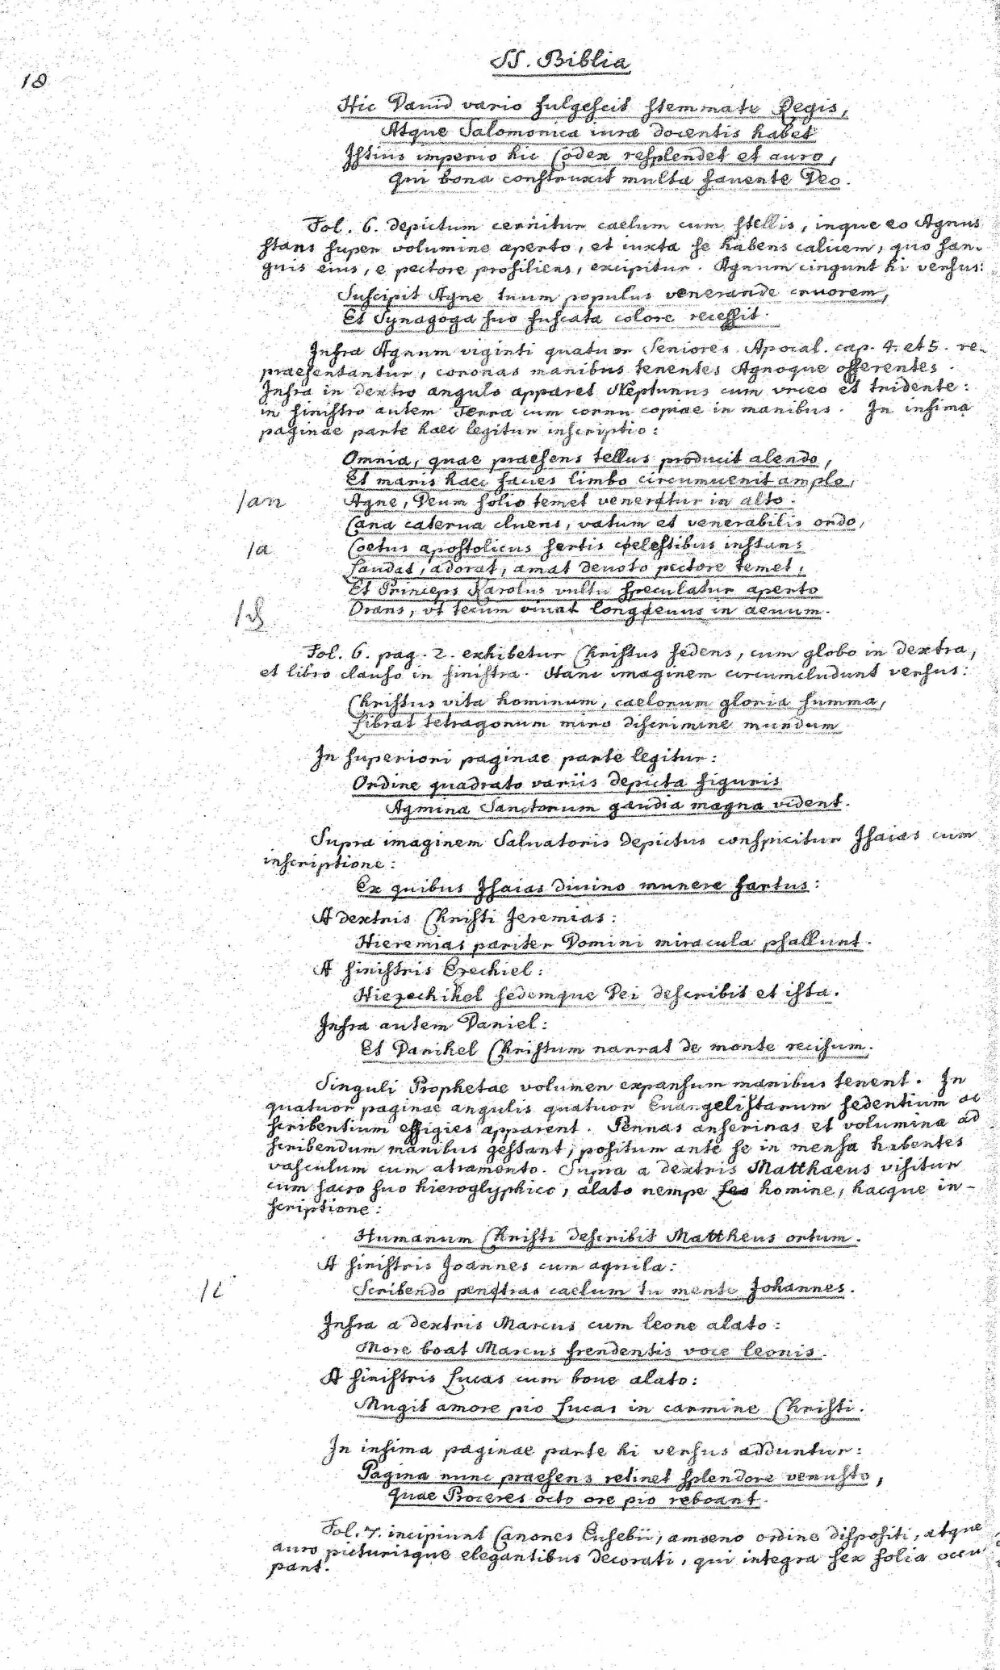 SS. Biblia
18
Hic Dauid vario fulgescit stemmate Regis,
Atque Salomonica iura docentis habet
Istius imperio hic Codex resplendet et auro,
Qui bona construxit multa fauente Deo.
Fol. 6. depictum cernitur caelum cum stellis, inque eo Agnus
stans super volumine aperto, et iuxta se habens calicem, quo san-
guis eius, e pectore prosiliens, excipitur. Agnum cingunt hi versus:
Suscipit Agne tuum populus venerande cruorem,
Et Synagoga suo fuscata colore recessit.
Infra Agnum viginti quatuor Seniores Apocal. cap. 4. et 5. re-
praesentantur, coronas manibus tenentes Agnoque offerentes.
Infra in dextro angulo apparet Neptunus cum vrceo et tridente:
in sinistro autem Terra cum cornu copiae in manibus. In infima
paginae parte haec legitur inscriptio:
Omnia, quae praesens tellus producit alendo,
Et maris haec facies limbo circumuenit amplo,
/an Agne, Deum solio temet veneratur in alto.
Cana caterua cluens, vatum et venerabilis ordo,
/a Coetus apostolicus sertis coelestibus instans
Laudat, adorat, amat deuoto pectore temet,
Et Princeps Karolus vultu speculatur aperto
Orans, vt tecum viuat longaeuus in aeuum.
Fol. 6. pag. 2. exhibetur Christus sedens, cum globo in dextra,
et libro clauso in sinistra. Hanc imaginem circumcludunt versus:
Christus vita hominum, caelorum gloria summa,
Librat tetragonum miro discrimine mundum
In superiori paginae parte legitur:
Ordine quadrato variis depicta figuris
Agmina Sanctorum gaudia magna vident.
Supra imaginem Saluatoris depictus conspicitur Isaias cum
inscriptione:
Ex quibus Isaias diuino munere fartus:
A dextris Christi Jeremias:
Hieremias pariter Domini miracula psallunt.
A sinistris Ezechiel:
Hiezechihel sedemque Dei describit et ista.
Infra autem Daniel:
Et Danihel Christum narrat de monte recisum.
Singuli Prophetae volumen expansum manibus tenent. In
quatuor paginae angulis quatuor Euangelistarum sedentium ac
scribentium effigies apparent. Pennas anserinas et volumina ad
scribendum manibus gestant, positum ante se in mensa habentes
vasculum cum atramento. Supra a dextris Matthaeus visitur
cum sacro suo hieroglyphico, alato nempe homine, hacque in-
scriptione:
Humanum Christi describis Mattheus ortum.
A sinistris Joannes cum aquila:
/i Scribendo penetras caelum tu mente Johannes.
Infra a dextris Marcus cum leone alato:
More boat Marcus frendentis voce leonis.
A sinistris Lucas cum boue alato:
Mugit amore pio Lucas in carmine Christi.
In infima paginae parte hi versus adduntur:
Pagina nunc praesens retinet splendore venusto,
Quae Proceres octo ore pio reboant.
Fol. 7. incipiunt Canones Eusebii, amoeno ordine dispositi, atque
auro picturisque elegantibus decorati, qui integra sex folia occu
pant.